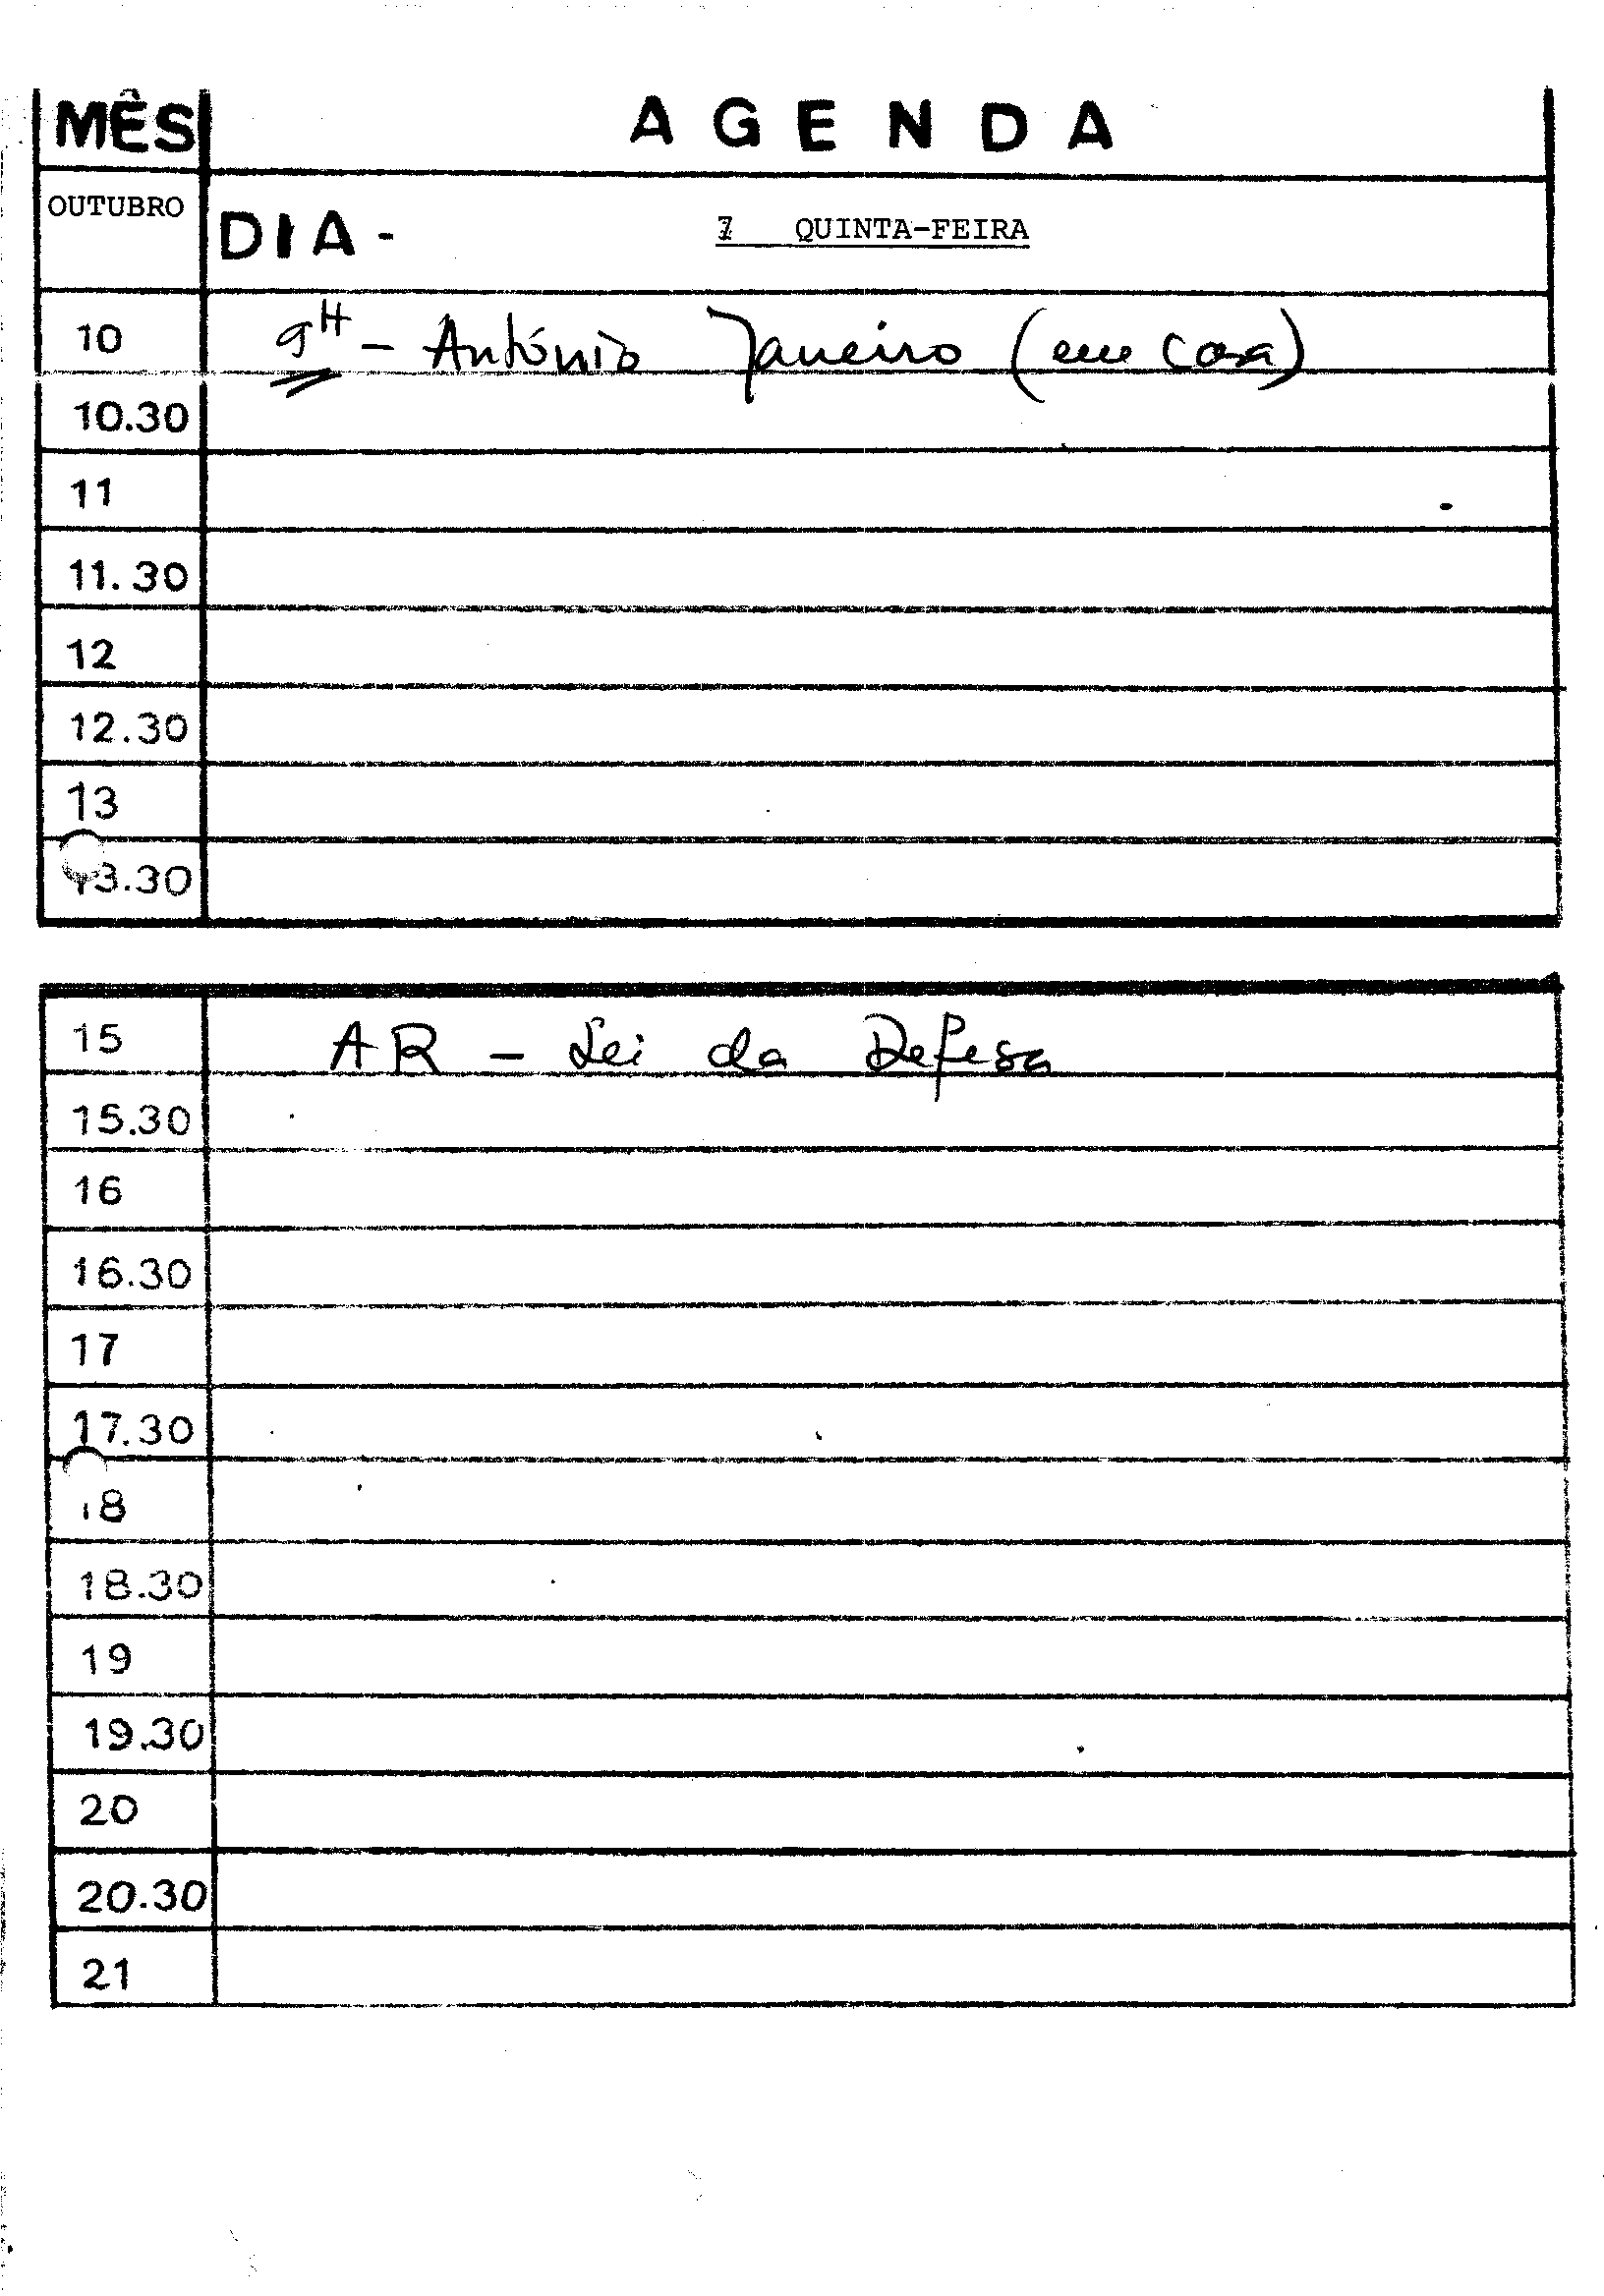 MÊS AGENDA
OUTUBRO DIA - 7 QUINTA-FEIRA
10 9H - António Janeiro (em casa)
10.30
11
11.30
12
12.30
13
13.30
15 AR - Lei da Defesa
15.30
16
16.30
17
17.30
18
18.30
19
19.30
20
20.30
21